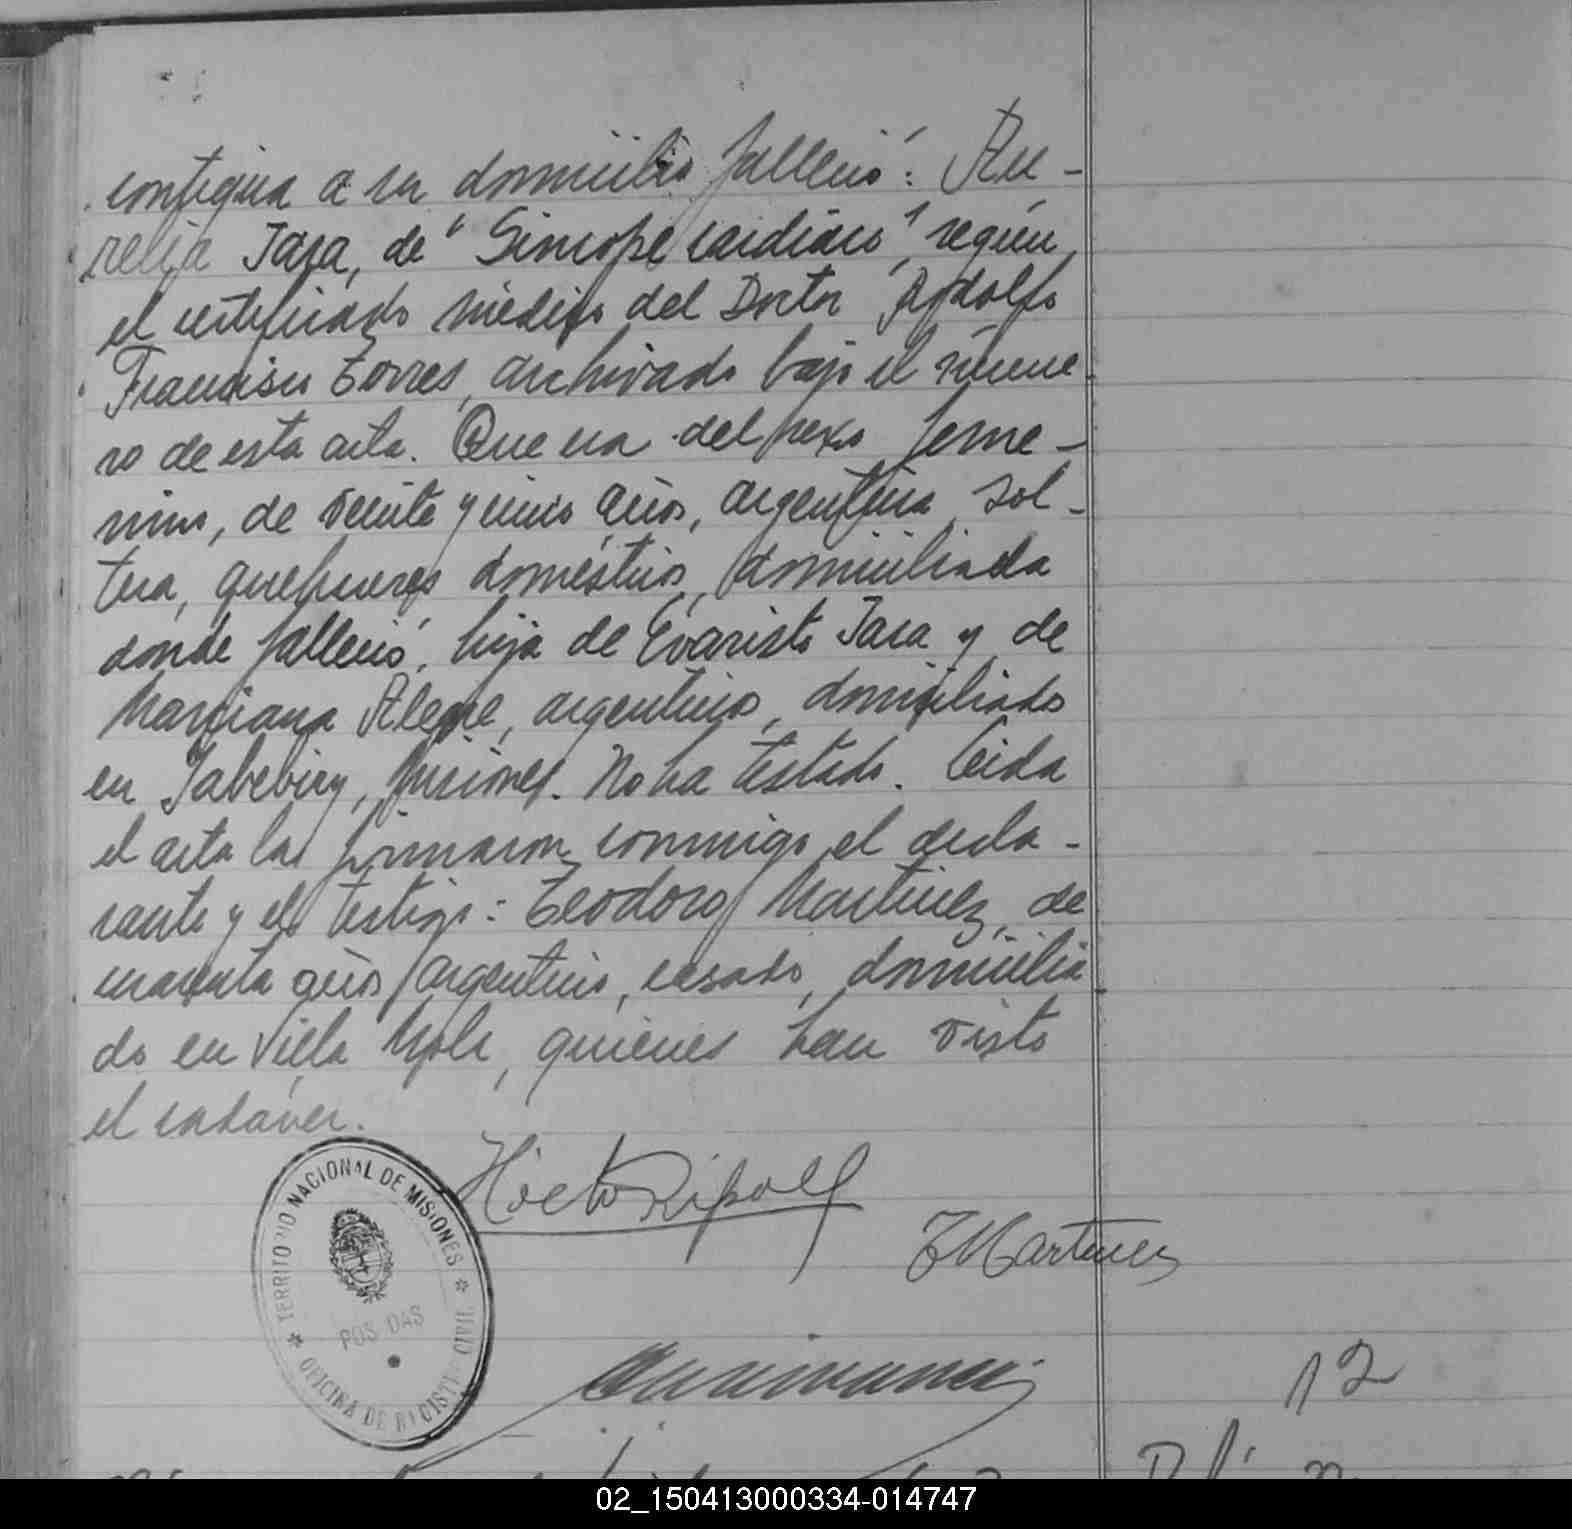 contigua a su domicilio falleció: Au-
relia Jara, de "Sincope cardiaco", según
el certificado médico del Doctor Rodolfo
Francisco Torres, archivado bajo el núme
ro de esta acta. Que era del sexo feme-
nino, de veinte y cinco años, argentina, sol-
tera, quehaceres domésticos, domiciliada
donde falleció, hija de Evaristo Jara y de
Marciana Alegre, argentinos, domiciliados
en Yabebiry, Misiones. No ha testado. Leida
el acta la firmaron conmigo el decla-
rante y el testigo: Teodoro Martinez, de
cuarenta años, argentino, casado, domicilia
do en Villa, quienes han visto
el cadáver.
Héctor Ripoll
TMartinez
TERRITORIO NACIONAL DE MISIONES
POSADAS
OFICINA DE REGISTRO CIVIL
12
02_150413000334-014747